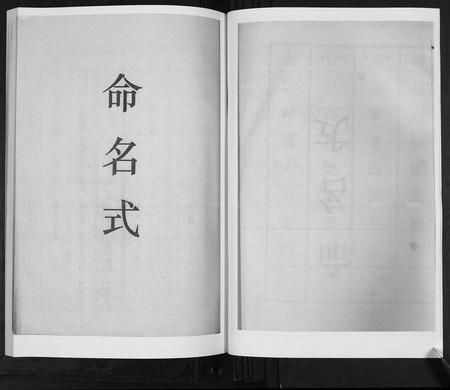 命名式